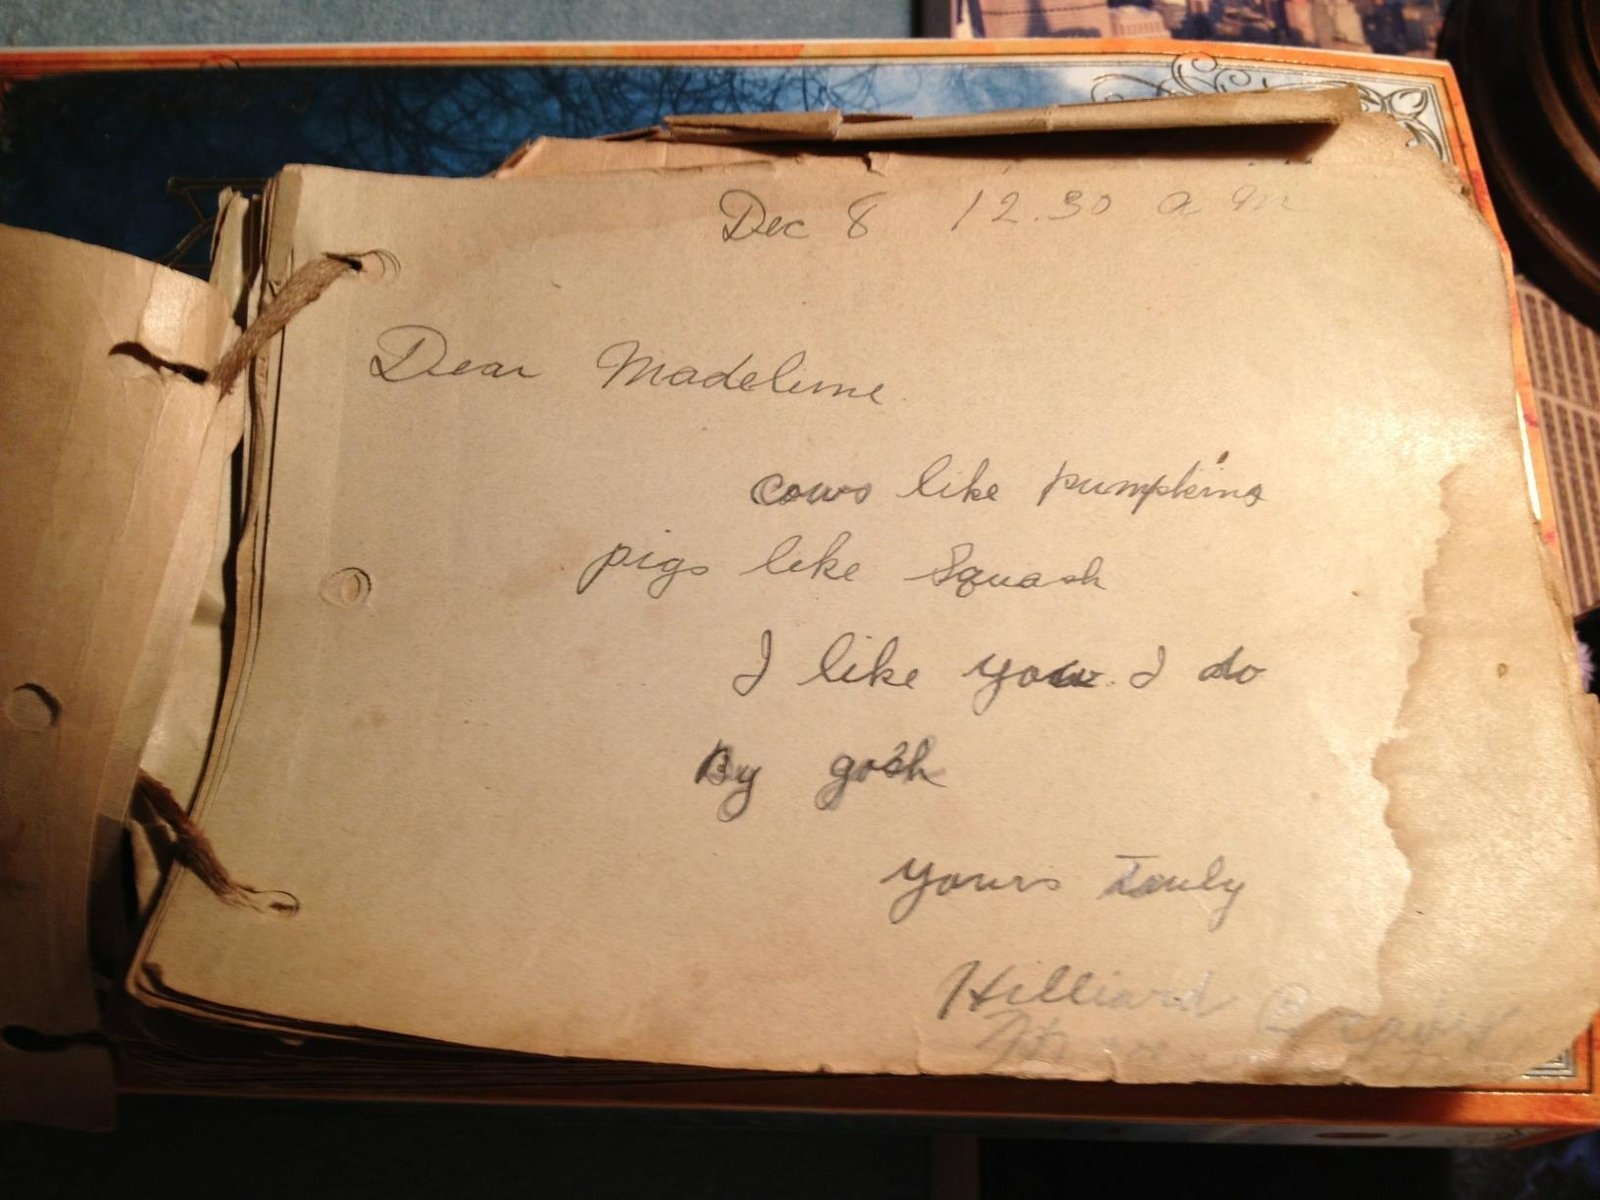 Dec 8 12.30 a m
Dear Madeline
cows like pumpkins
pigs like Squash
I like you I do
By gosh
yours Truly
Hilliard